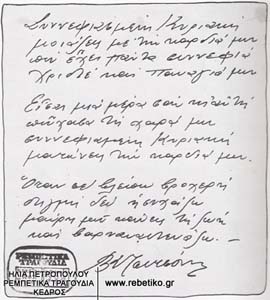 Συννεφιασμένη Κυριακή
μοιάζεις με την καρδιά μου
που έχει πάντα συννεφιά
Χριστέ και Παναγιά μου
Είσαι μια μέρα σαν κι αυτή
που έχασα τη χαρά μου
συννεφιασμένη Κυριακή
ματώνεις την καρδιά μου.
Όταν σε βλέπω βροχερή
στιγμή δεν ησυχάζω
μαύρη μου κάνεις τη ζωή
και βαριαναστενάζω. —
ΡΕΜΠΕΤΙΚΑ
ΤΡΑΓΟΥΔΙΑ
ΗΛΙΑ ΠΕΤΡΟΠΟΥΛΟΥ
ΡΕΜΠΕΤΙΚΑ ΤΡΑΓΟΥΔΙΑ
ΚΕΔΡΟΣ
www.rebetiko.gr